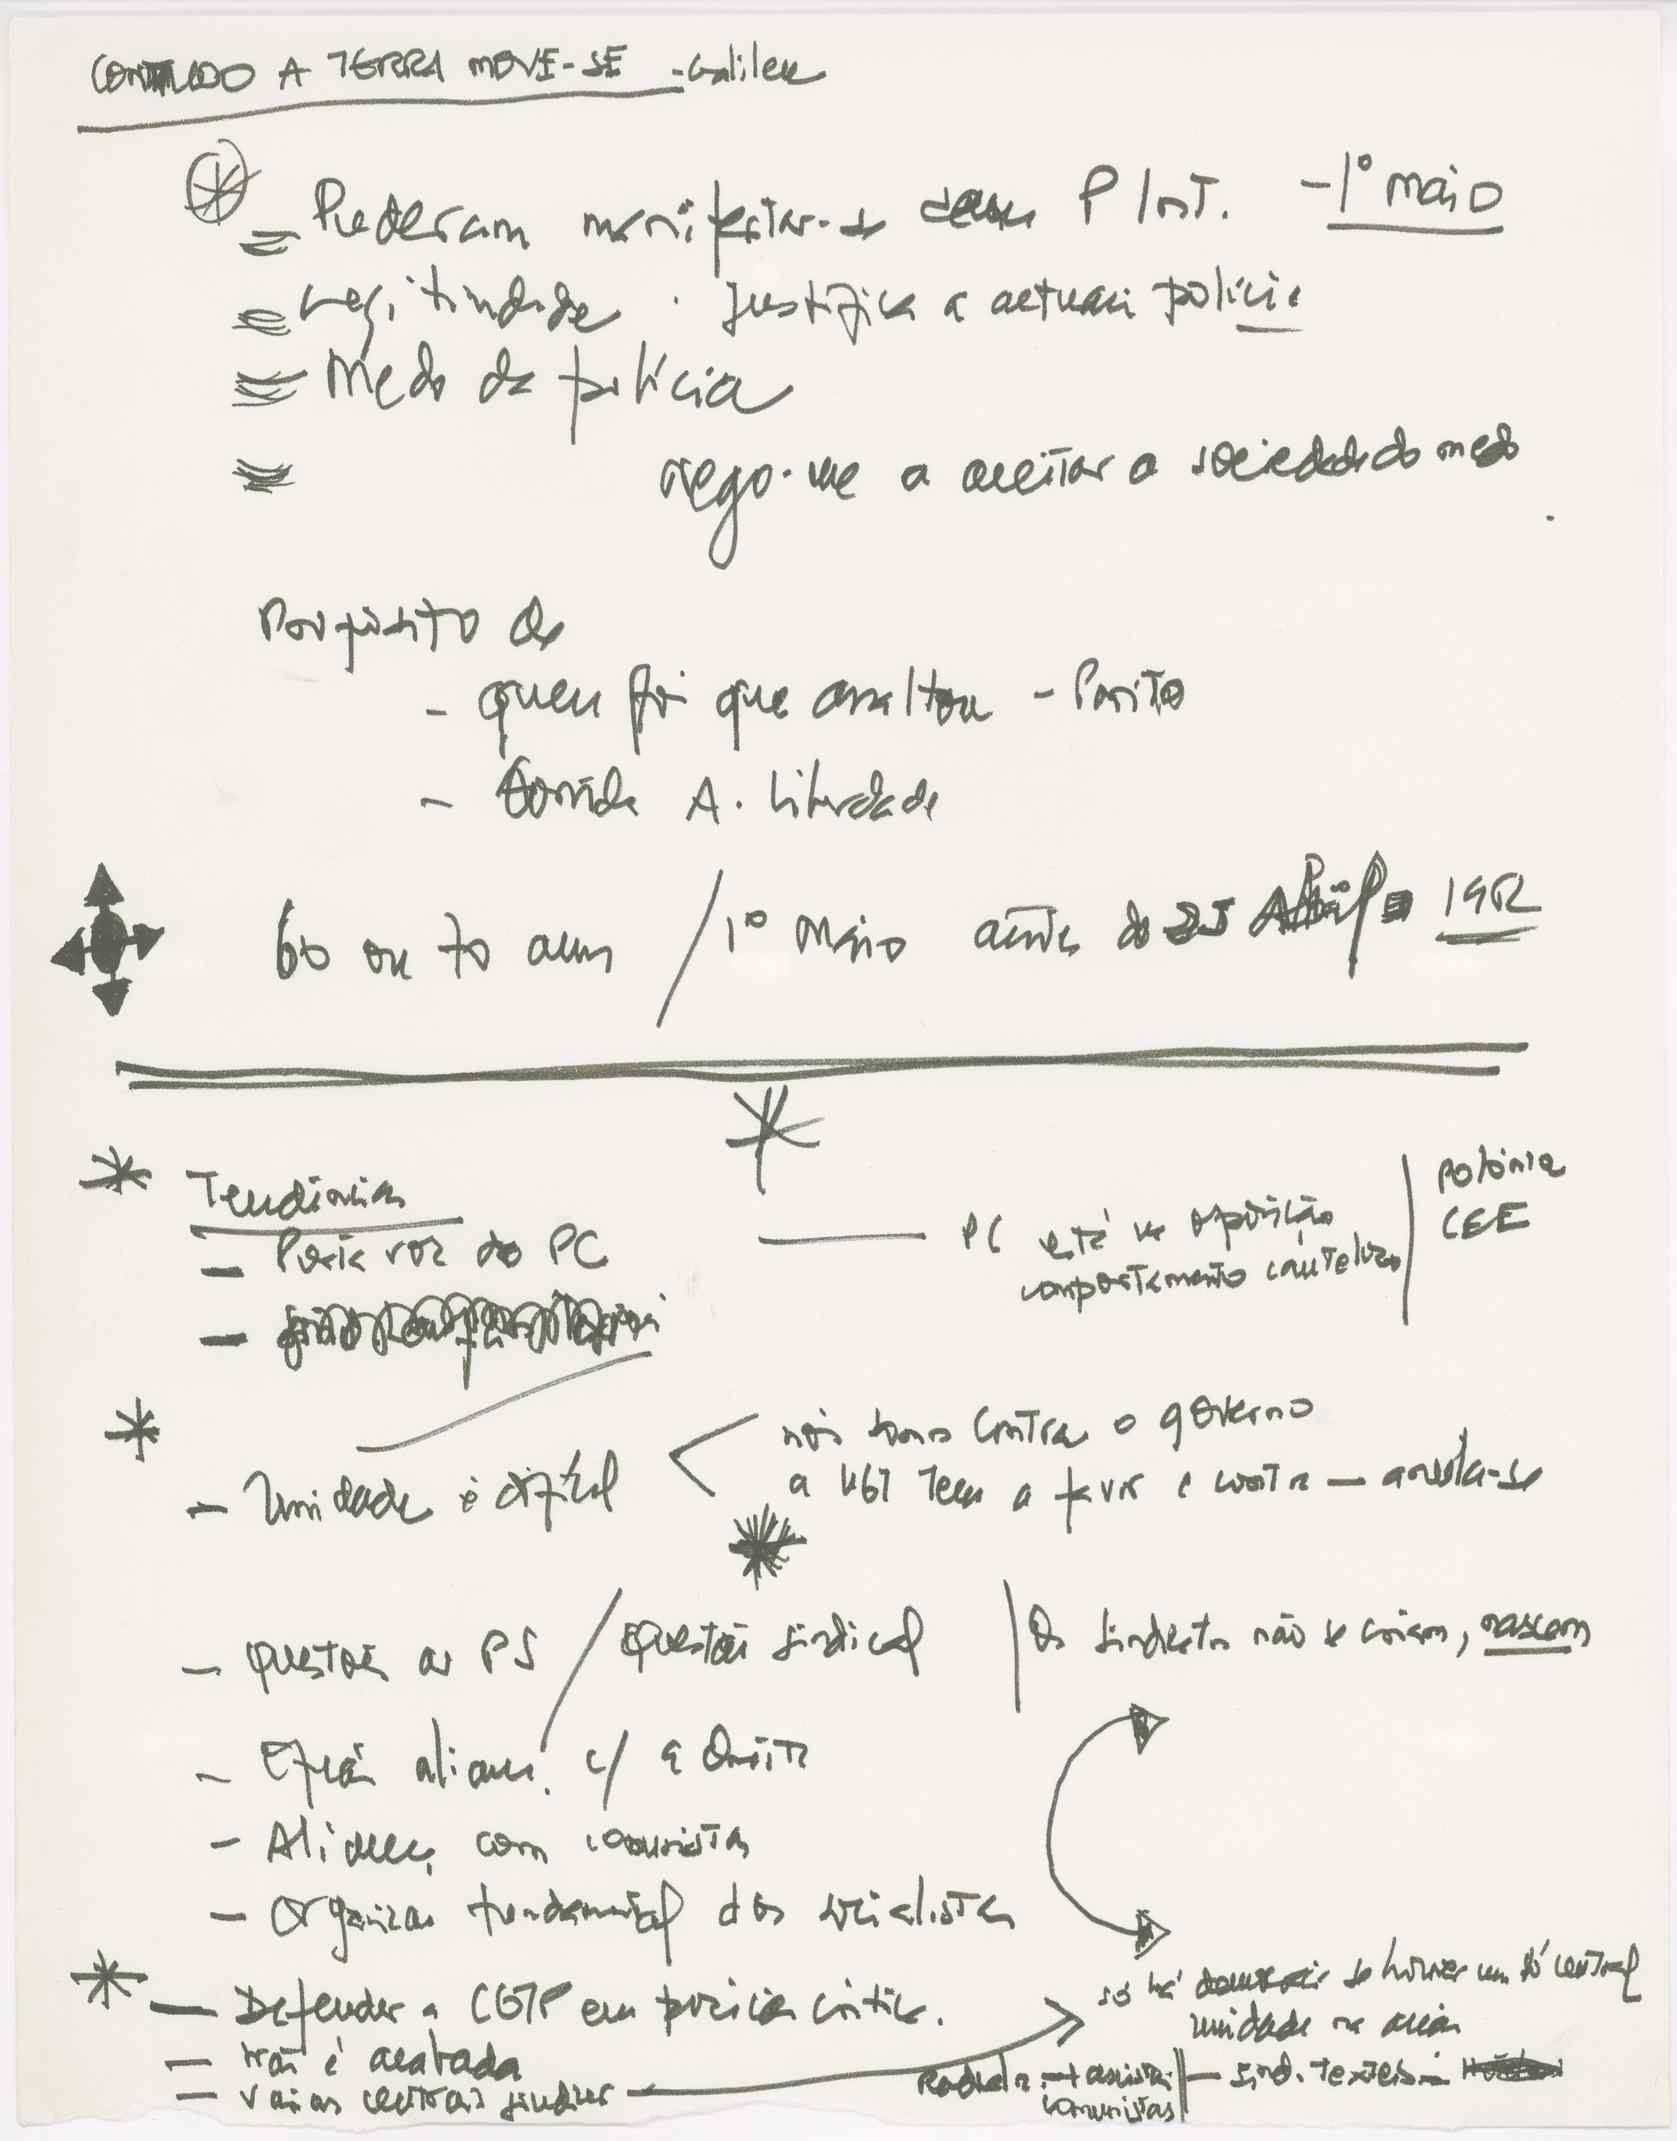 CONTUDO A TERRA MOVE-SE - Galileu
Puderam manifestar-se P Int. - 1º MAIO
Legitimidade . Justifica a actuar polícia
Medo da polícia
nego-me a aceitar a sociedade do medo
Propósito de
- quem foi que assaltou -
- A. Liberdade
60 ou 70 anos / 1º Maio antes do 25 Abril 1982
Tendências
- Porta voz do PC — PC está na oposição
comportamento cauteloso
Polónia
CEE
-
- Unidade é difícil < nós somos contra o governo
a UGT tem a favor e contra — anula-se
- questão do PS / questão sindical | Os sindicatos não se criam, nascem
- aliança c/ a Direita
- Aliança com comunistas
- Organizar fundamental dos socialistas
- Defender a CGTP em posição crítica.
- não é acabada
- várias centrais sindicais
só há se houver um só central
unidade na acção
comunistas